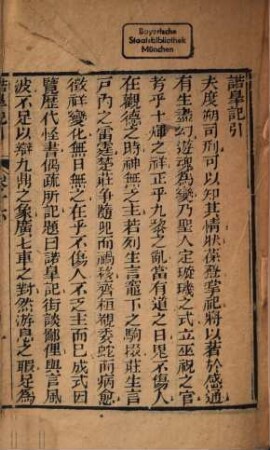 Bayerische
Staatsbibliothek
München
諾皐記引
夫度朔司刑可以知其情狀葆登掌祀將以著於感通
有生盡幻遊魂為變乃聖人定璇璣之式立巫祝之官
考乎十煇之祥正乎九黎之亂當有道之日鬼不傷人
在觀德之時神無乏主若列生言竈下之駒掇莊生言
戶內之雷霆楚莊爭隨兕而禍移齊桓覩委蛇而病愈
徵祥變化無日無之在乎不傷人不乏主而已成式因
覽歷代怪書偶疏所記題曰諾皐記街談鄙俚輿言風
波不足以辯九鼎之象廣七車之對然游息之暇足為